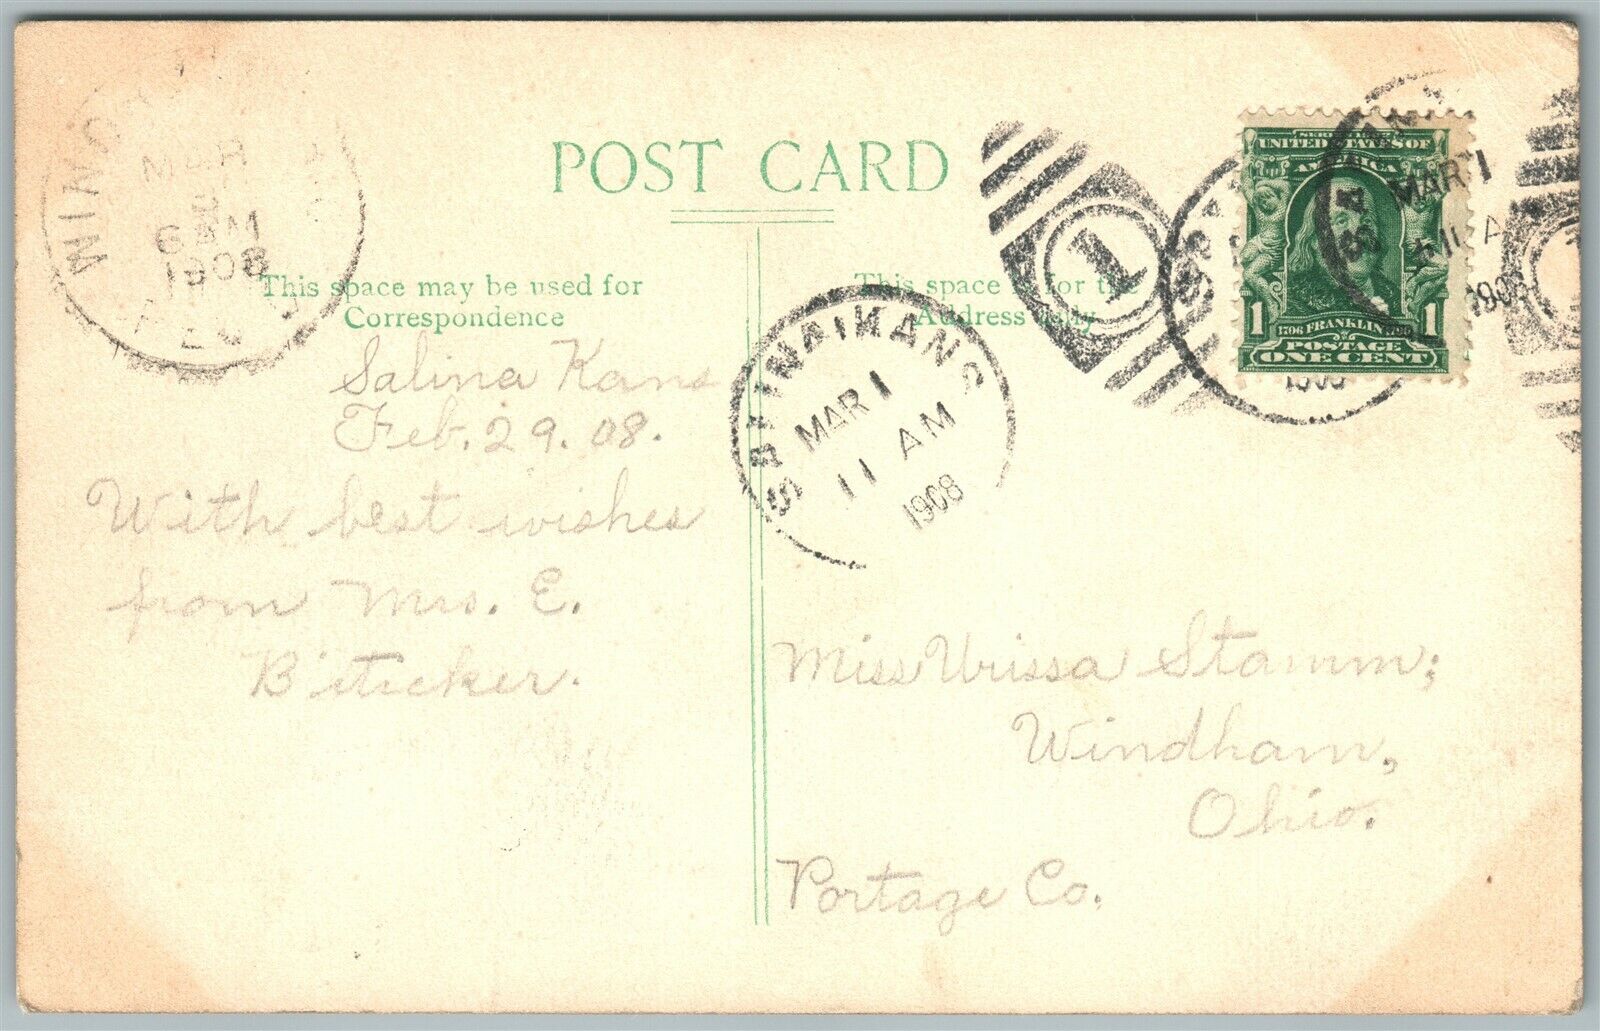 POST CARD
This space may be used for
Correspondence
Salina Kans
Feb. 29. 08.
With best wishes
from Mrs. E.
Biticker.
This space is for the
Address only
Miss Urissa Stamm;
Windham,
Ohio.
Portage Co.
SALINA KANS
MAR 1
11 AM
1908
1
SERIES 1902
UNITED STATES OF
AMERICA
1 1706 FRANKLIN 1790 1
POSTAGE
ONE CENT
MAR 1
11 A
1908
1908
MAR
6 AM
1908
REC'D